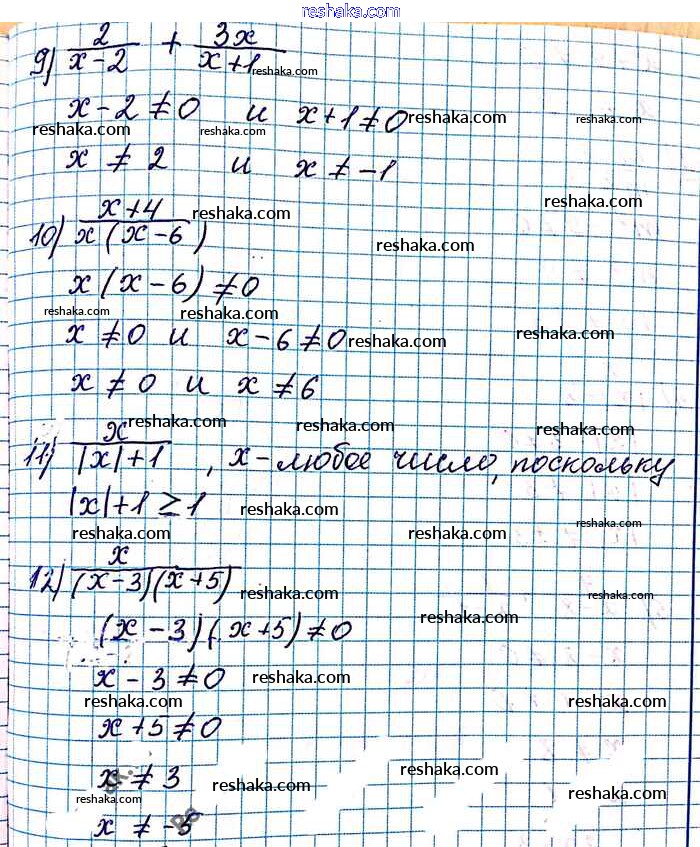 reshaka.com
9) 2/(x-2) + 3x/(x+1) reshaka.com
x-2≠0 и x+1≠0 reshaka.com reshaka.com
reshaka.com reshaka.com
x ≠ 2 и x ≠ -1
reshaka.com
10) (x+4)/(x(x-6)) reshaka.com
reshaka.com
x(x-6)≠0
reshaka.com reshaka.com
x≠0 и x-6≠0 reshaka.com
x≠0 и x≠6
reshaka.com reshaka.com
11) x/(|x|+1), x-любое число, поскольку
|x|+1≥1 reshaka.com
reshaka.com
12) x/((x-3)(x+5)) reshaka.com
reshaka.com
(x-3)(x+5)≠0
x-3≠0 reshaka.com
reshaka.com reshaka.com
x+5≠0
x≠3 reshaka.com reshaka.com
reshaka.com reshaka.com
x≠-5